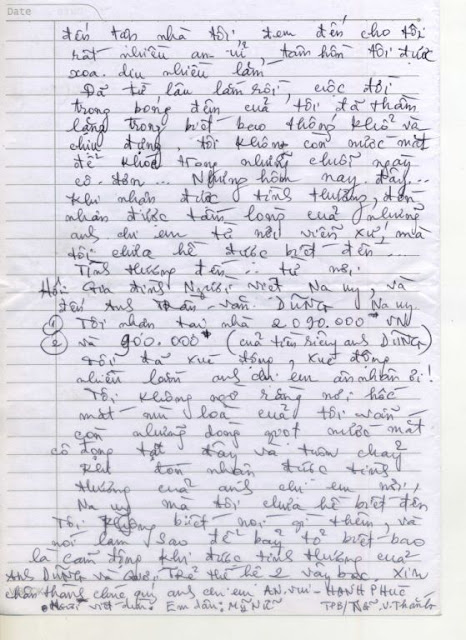 Date
đến tận nhà tôi, đem đến cho tôi
rất nhiều an-ủi, tâm hồn tôi được
xoa dịu nhiều lắm
Đã từ lâu lắm rồi, cuộc đời
trong bóng đêm của tôi đã thầm
lặng trong biết bao thống khổ và
chịu đựng, tôi không còn nước mắt
để khóc trong những chuỗi ngày
cô-đơn ... Nhưng hôm nay đây...
khi nhận được tình thương, đến
nhận được tấm lòng của những
anh chị em từ nơi viễn xứ, mà
tôi chưa hề được biết đến ...
Tình thương đến ... từ nơi,
Hội: Gia đình Người việt Na uy, và
đến Anh Trần-văn-DŨNG Na uy
① Tôi nhận tại nhà 2 090.000đ VN
② và 900.000đ (của tiền riêng anh DŨNG)
Tôi đã xúc động, xúc động
nhiều lắm anh chị em ân nhân ơi!
Tôi không ngờ rằng nơi hốc
mắt mù loà của tôi vẫn
còn những dòng giọt nước mắt
cô đọng tột đây và tuôn chảy
khi đón nhận được tình
thương của anh chị em nơi,
Na uy mà tôi chưa hề biết đến
Tôi không biết nói gì thêm, và
nói làm sao để bày tỏ biết-bao
là cảm động khi được tình thương của
Anh DŨNG và Thế hệ 2 vậy Xin
chân thành chúc quý anh chị em AN.vui - HẠNH PHÚC
Người viết dùm: Em dâu: Mỹ Nữ TPB/ V. Thành